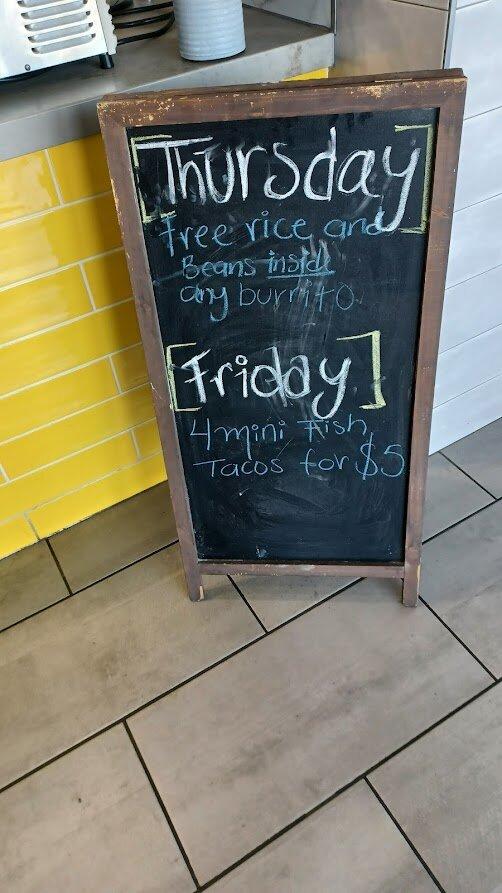 [Thursday]
Free rice and
Beans inside
any burrito.
[Friday]
4 mini Fish
Tacos for $5